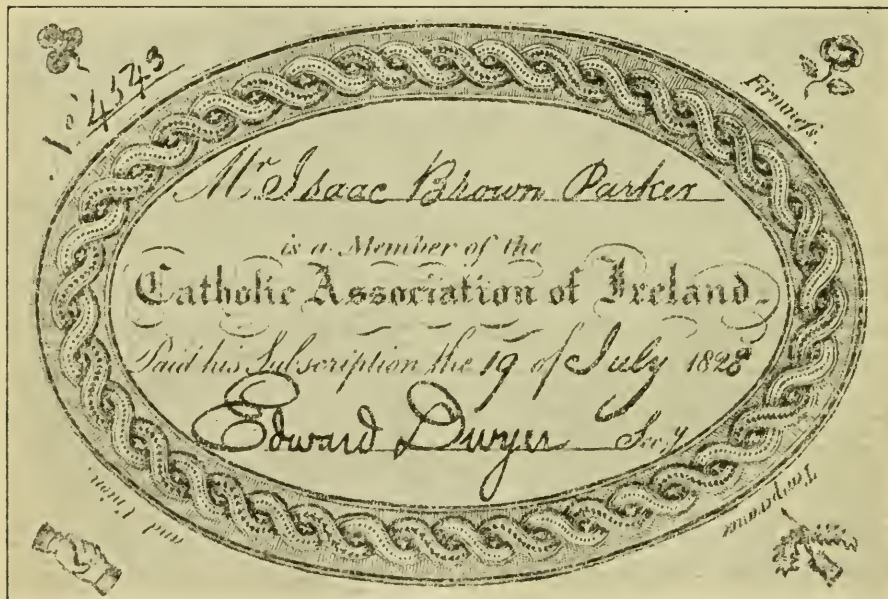 No. 4543
Firmness.
Mr. Isaac Brown Parker
is a Member of the
Catholic Association of Ireland.
Paid his Subscription the 19 of July 1828
Edward Dwyer Secy.
Temperance
and Union.